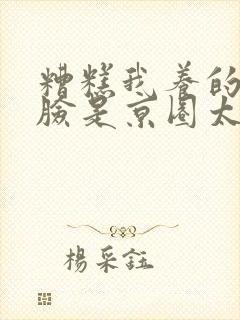 糟糕我養的
臉是京圈太
楊采鈺